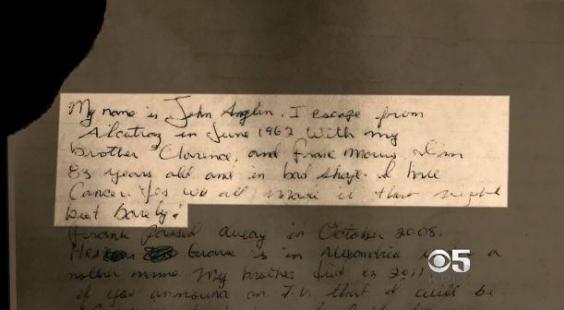 My name is John Anglin. I escape from
Alcatraz in June 1962 With my
brother Clarence, and Frank Morris, I'm
83 years old and in bad shape. I have
Cancer. Yes we all made it that night
but barely!
Frank passed away in October 2008.
His Grave is in Alexandria a
nother name. My brother died in 2011
If you announce on T.V. that I will be
5